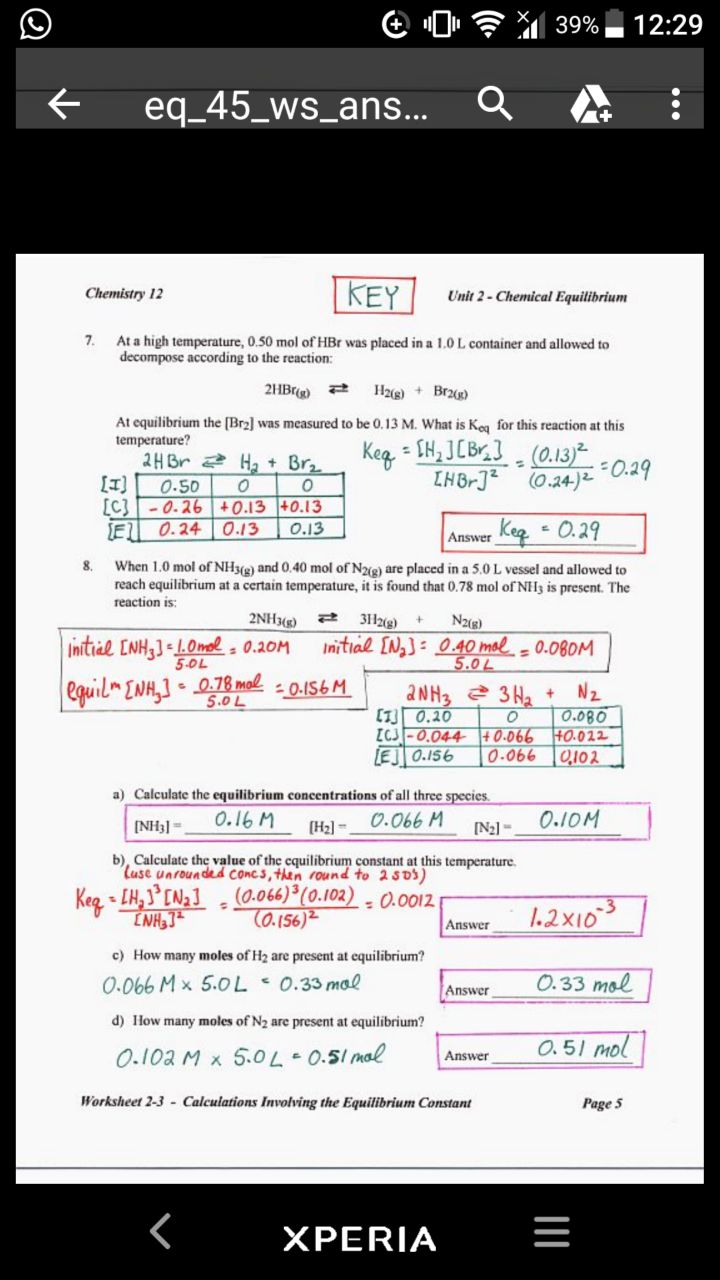 39% 12:29
eq_45_ws_ans...
Chemistry 12 KEY Unit 2 - Chemical Equilibrium
7. At a high temperature, 0.50 mol of HBr was placed in a 1.0 L container and allowed to
decompose according to the reaction:
2HBr(g) ⇌ H2(g) + Br2(g)
At equilibrium the [Br2] was measured to be 0.13 M. What is Keq for this reaction at this
temperature?
2HBr ⇌ H2 + Br2
[I] 0.50 0 0
[C] -0.26 +0.13 +0.13
[E] 0.24 0.13 0.13
Keq = [H2][Br2] / [HBr]² = (0.13)² / (0.24)² = 0.29
Answer Keq = 0.29
8. When 1.0 mol of NH3(g) and 0.40 mol of N2(g) are placed in a 5.0 L vessel and allowed to
reach equilibrium at a certain temperature, it is found that 0.78 mol of NH3 is present. The
reaction is:
2NH3(g) ⇌ 3H2(g) + N2(g)
initial [NH3] = 1.0mol / 5.0L = 0.20M initial [N2] = 0.40 mol / 5.0L = 0.080M
equilm [NH3] = 0.78 mol / 5.0L = 0.156M
2NH3 ⇌ 3H2 + N2
[I] 0.20 0 0.080
[C] -0.044 +0.066 +0.022
[E] 0.156 0.066 0.102
a) Calculate the equilibrium concentrations of all three species.
[NH3] = 0.16 M [H2] = 0.066 M [N2] = 0.10M
b) Calculate the value of the equilibrium constant at this temperature.
(use unrounded concs, then round to 2 SD's)
Keq = [H2]³[N2] / [NH3]² = (0.066)³(0.102) / (0.156)² = 0.0012
Answer 1.2x10⁻³
c) How many moles of H2 are present at equilibrium?
0.066 M x 5.0L = 0.33 mol
Answer 0.33 mol
d) How many moles of N2 are present at equilibrium?
0.102 M x 5.0L = 0.51 mol
Answer 0.51 mol
Worksheet 2-3 - Calculations Involving the Equilibrium Constant Page 5
XPERIA